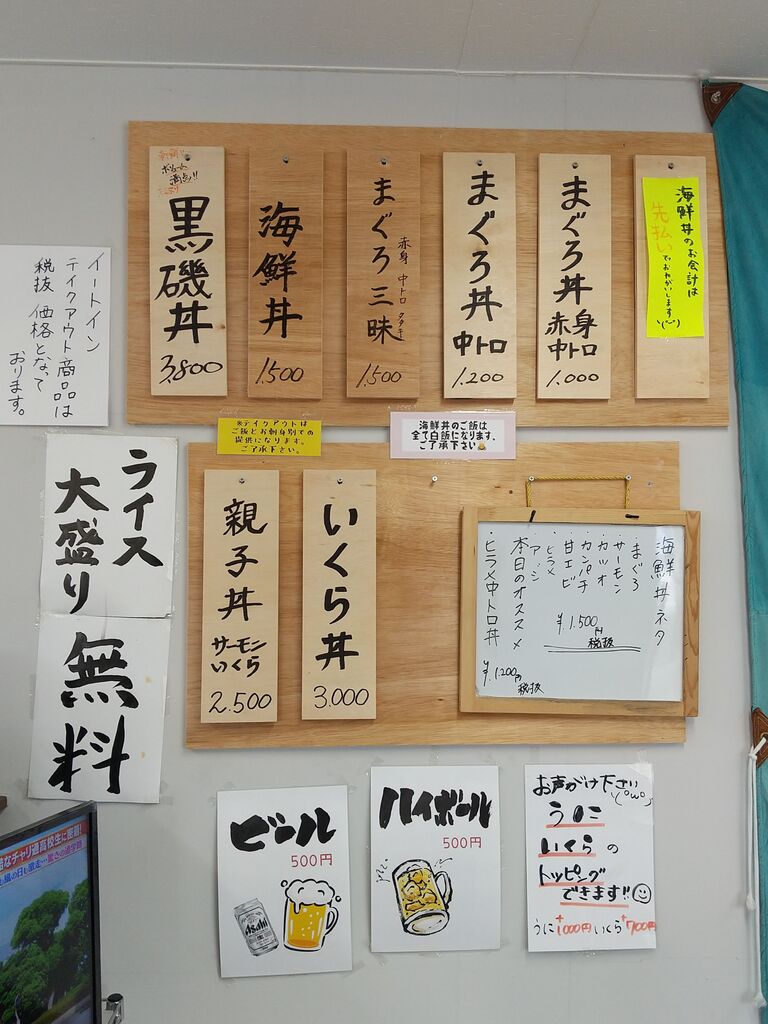 海鮮丼のお会計は
先払いでおねがいします
まぐろ丼
赤身
中トロ
1.000
まぐろ丼
中トロ
1.200
まぐろ三昧
赤身 中トロ タタキ
1.500
海鮮丼
1.500
ボリューム
満点!!
黒磯丼
3.800
イートイン
テイクアウト商品は
税抜価格となって
おります。
※テイクアウトは
ご飯とお刺身別での
提供になります。
ご了承下さい。
海鮮丼のご飯は
全て白飯になります。
ご了承下さい
ライス
大盛り
無料
いくら丼
3.000
親子丼
サーモン
いくら
2.500
海鮮丼ネタ
・まぐろ
・サーモン
・カツオ
・カンパチ
・甘エビ
・ヒラメ
・アジ
¥1.500円
税抜
本日のオススメ
・ヒラメ中トロ丼
¥1.200円
税抜
ビール
500円
Asahi
ハイボール
500円
お声がけ下さい
うに
いくらの
トッピング
できます!!
うに+1000円 いくら+700円